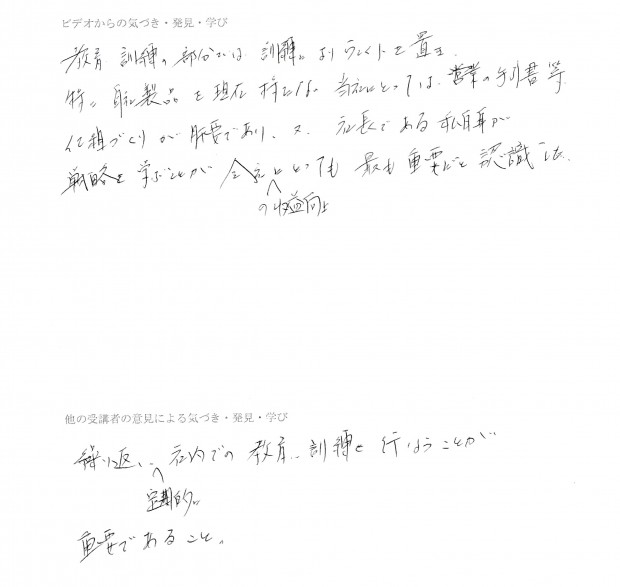 ビデオからの気づき・発見・学び
教育 訓練の部分では 訓練に よりウェイトを置き、
特に 自社製品を現在 持たない 当社にとっては、営業の手引書等
仕組づくりが 肝要であり、又、社長である私自身が
戦略を学ぶことが 会社にとっても 最も重要だと認識した。
の収益向上
他の受講者の意見による気づき・発見・学び
繰り返し、社内での教育、訓練を行なうことが
定期的に
重要であること。